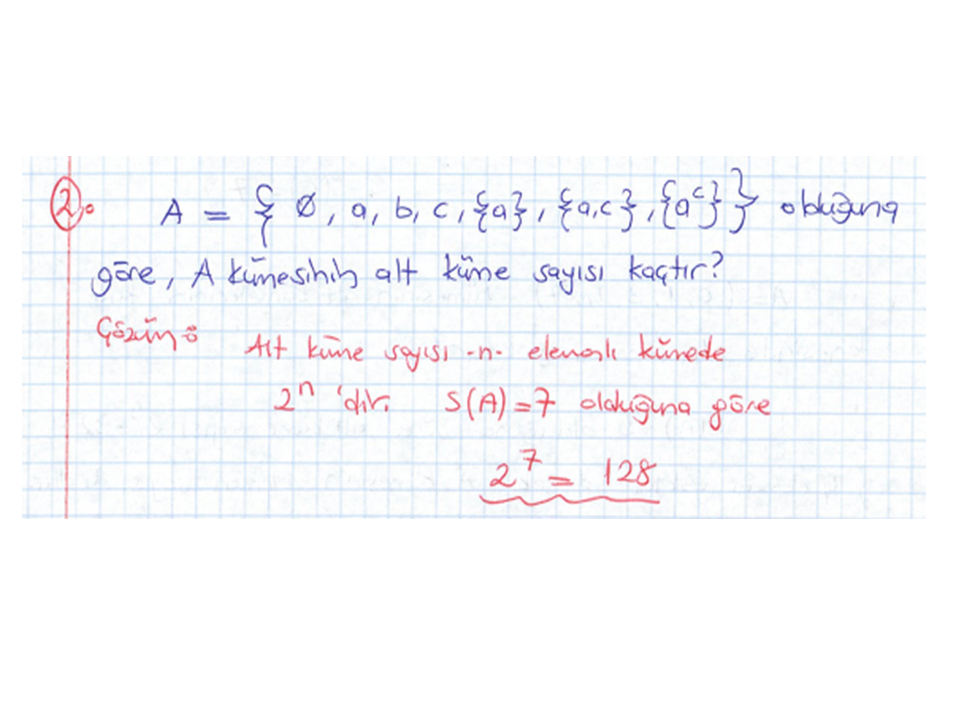 2. A = { Ø, a, b, c, {a}, {a,c}, {aᶜ} } olduğuna
göre, A kümesinin alt küme sayısı kaçtır?
Çözüm: Alt küme sayısı -n- elemanlı kümede
2ⁿ 'dir. S(A)=7 olduğuna göre
2⁷ = 128